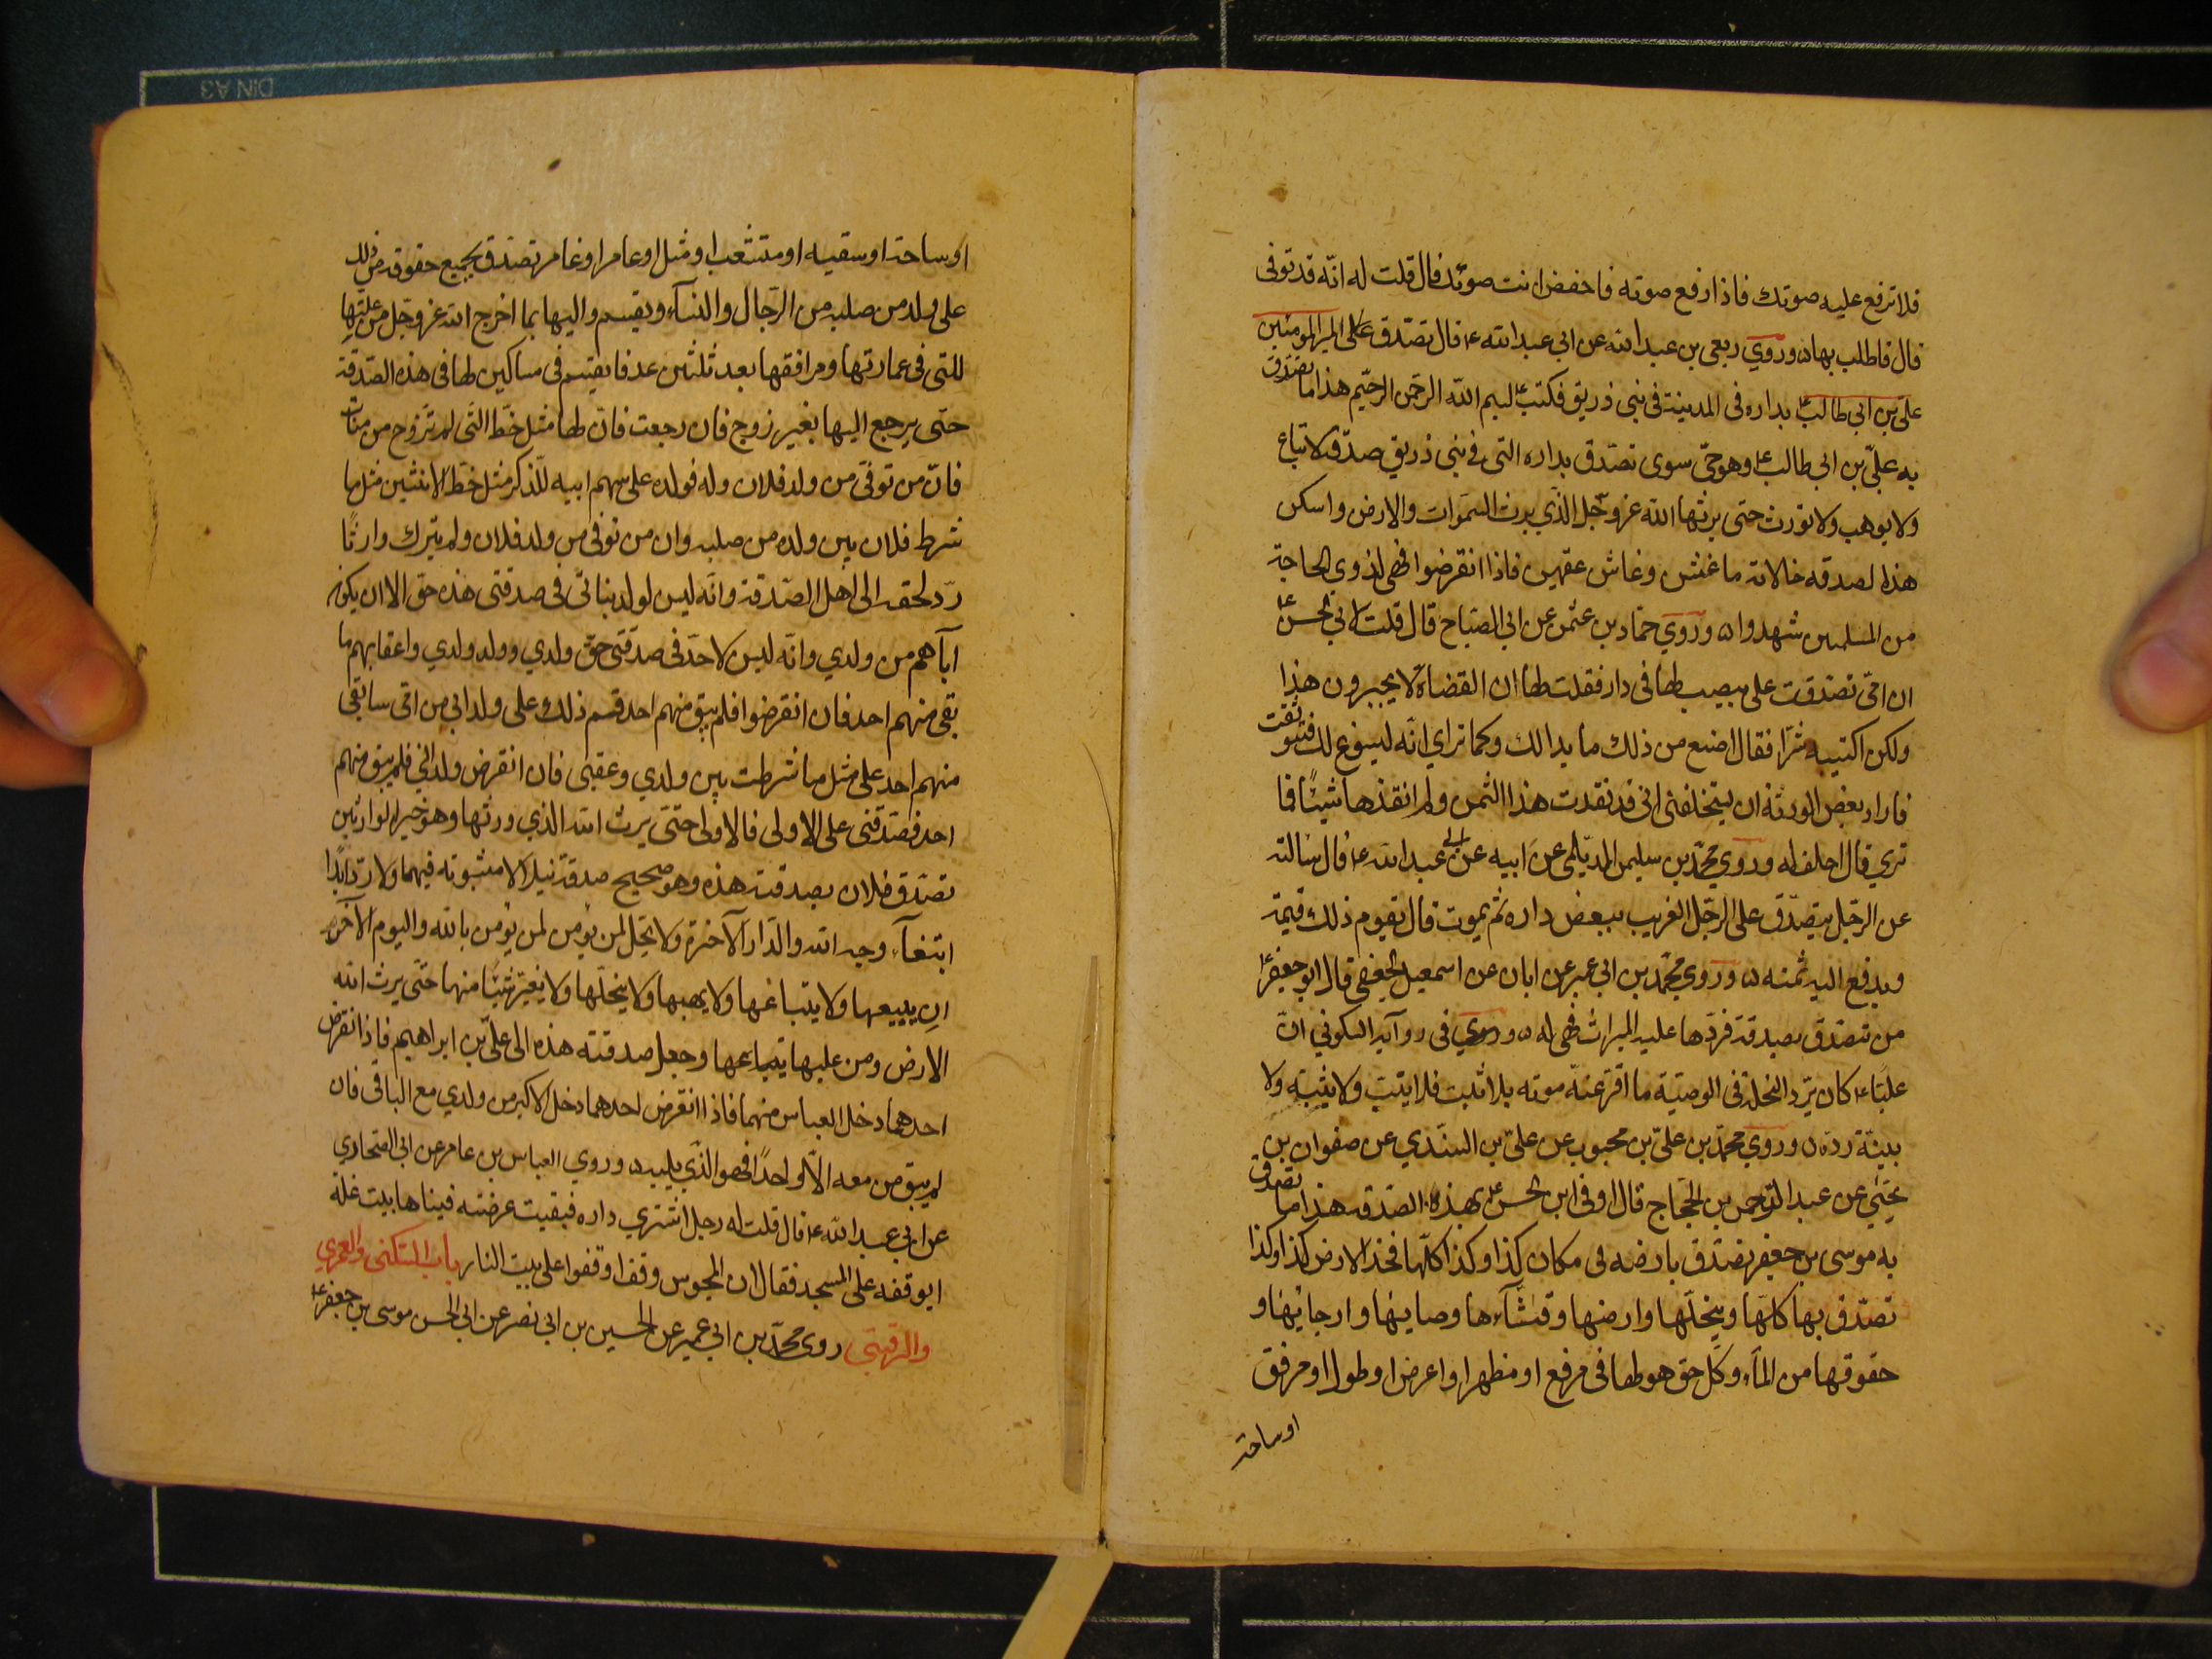 فلا ترفع عليه صوتك فاذا رفع صوته فاخفض انت صوتك قال قلت له انّه قد توفى
قال فاطلب بها ه وروي ربعى بن عبد الله عن ابى عبد الله ع قال تصدّق امير المومنين
علىّ بن ابى طالب ع بداره فى المدينة فى بنى ذريق فكتب بسم الله الرحمن الرحيم هذا ما تصدق
به علىّ بن ابى طالب ع وهو حىّ سوى تصدّق بداره التى فى بنى ذريق صدقة لا تباع
ولا يوهب ولا تورث حتى يرثها الله عز وجل الذي يرث السموات والارض واسكن
هذا لصدقه خالاته ما عشن وعاش عقبهن فاذا انقرضوا فهى لذوى الحاجة
من المسلمين شهدوا ه وروي حماد بن عثمن عن ابى الصباح قال قلت لابى الحسن ع
ان امّى تصدّقت على بنصيب لها فى دار فقلت لها ان القضاة لا يجيزون هذا
ولكن اكتبيه شرا فقال اصنع من ذلك ما بدا لك وكما ترى انّه يسوغ لك فتوثقت
فاراد بعض الورثة ان يستحلفنى انى قد نقدت هذا الثمن ولم انقذها شيئًا فما
تري قال احلف له وروي محمّد بن سليمن الديلمى عن ابيه عن ابى عبد الله ع قال سالته
عن الرجل يتصدّق على الرجل الغريب ببعض داره ثم يموت قال يقوم ذلك قيمة
ويدفع اليه ثمنه ه وروي محمّد بن ابى عمير عن ابان عن اسمعيل الجعفى قال ابو جعفر ع
من تصدّق بصدقة فردّها عليه الميراث فهى له ه وروي فى رواية السكوني انّ
عليّا ع كان يردّ النحلة فى الوصيّة ما اقرّ عند موته بلا ثبت فلا يثبت ولا يثبته ولا
بينة ردّه ه وروي محمّد بن علىّ بن محبوب عن علىّ بن السندي عن صفوان بن
يحيى عن عبد الرحمن بن الحجاج قال اوفى ابن الحسن ع بهذه الصدقة هذا ما تصدّق
به موسى بن جعفر تصدّق بارضه فى مكان كذا وكذا كلّها فخذ الارض كذا وكذا
تصدّق بها كلّها وبنخلها وارضها وقنائها وارجائها و
حقوقها من الماء وكلّ حق هو لها فى مرفع او مظهر او عرض او طول او مرفق
او ساحة
او ساحة او سقيه او متشعب او مثل او عامر او غامر تصدّق بجميع حقوقه من ذلك
على ولده من صلبه من الرّجال والنسآء ويقسم واليها بما اخرج الله عز وجل من غلّتها
للتى فى عمارتها ومرافقها بعد ثلثين عدقا يقسم فى مساكين لها فى هذه الصّدقة
حتّى يرجع اليها بغير زوج فان رجعت فانّ لها مثل حظّ التّى لم تتزوّج من بنات
فانّ من توفّى من ولد فلان وله فولده على سهم ابيه للذّكر مثل حظّ الانثيين مثل ما
شرط فلان بين ولده من صلبه وان من توفى من ولد فلان ولم يترك وارثًا
ردّ لحقه الى اهل الصّدقة وانّه ليس لولد بناتى فى صدقتى هذه حق الا ان يكون
آباهم من ولدي وانّه ليس لاحد فى صدقتى حقّ ولدي وولد ولدي واعقابهم ما
بقى منهم احد فان انقرضوا فلم يبق منهم احد قسم ذلك على ولد ابى من امّى ما بقى
منهم احد على مثل ما شرطت بين ولدي وعقبى فان انقرض ولد ابى فلم يبق منهم
احد فصدقتى على الاولى فالاولى حتّى يرث الله الذي ورثها وهو خير الوارثين
تصدّق فلان بصدقته هذه وهو صحيح صدقة بتلا لا مثبوته فيها ولا ردّ ابدًا
ابتغآء وجه الله والدّار الآخرة ولا يحلّ لمن يؤمن لمن يؤمن بالله واليوم الآخر
ان يبيعها ولا يتباعها ولا يهبها ولا ينحلها ولا يغيّر شيئًا منها حتّى يرث الله
الارض ومن عليها وجعل صدقته هذه الى علىّ بن ابراهيم فاذا انقرض
احدهما دخل العباس منهما فاذا انقرض احدهما دخل الاكبر من ولدي مع الباقى فان
لم يبق من معه الّا واحدًا فهو الذّي يليه ه وروي العباس بن عامر عن ابى الصحاري
عن ابى عبد الله ع قال قلت له رجل اشتري داره فبقيت عرضته فبناها بيت غلة
ايوقفه على المسجد فقال ان المجوس وقفوا على بيت النار باب السكنى والعمري
والرقبى روى محمّد بن ابى عمير عن الحسين بن ابى نصر عن ابى الحسن موسى بن جعفر ع